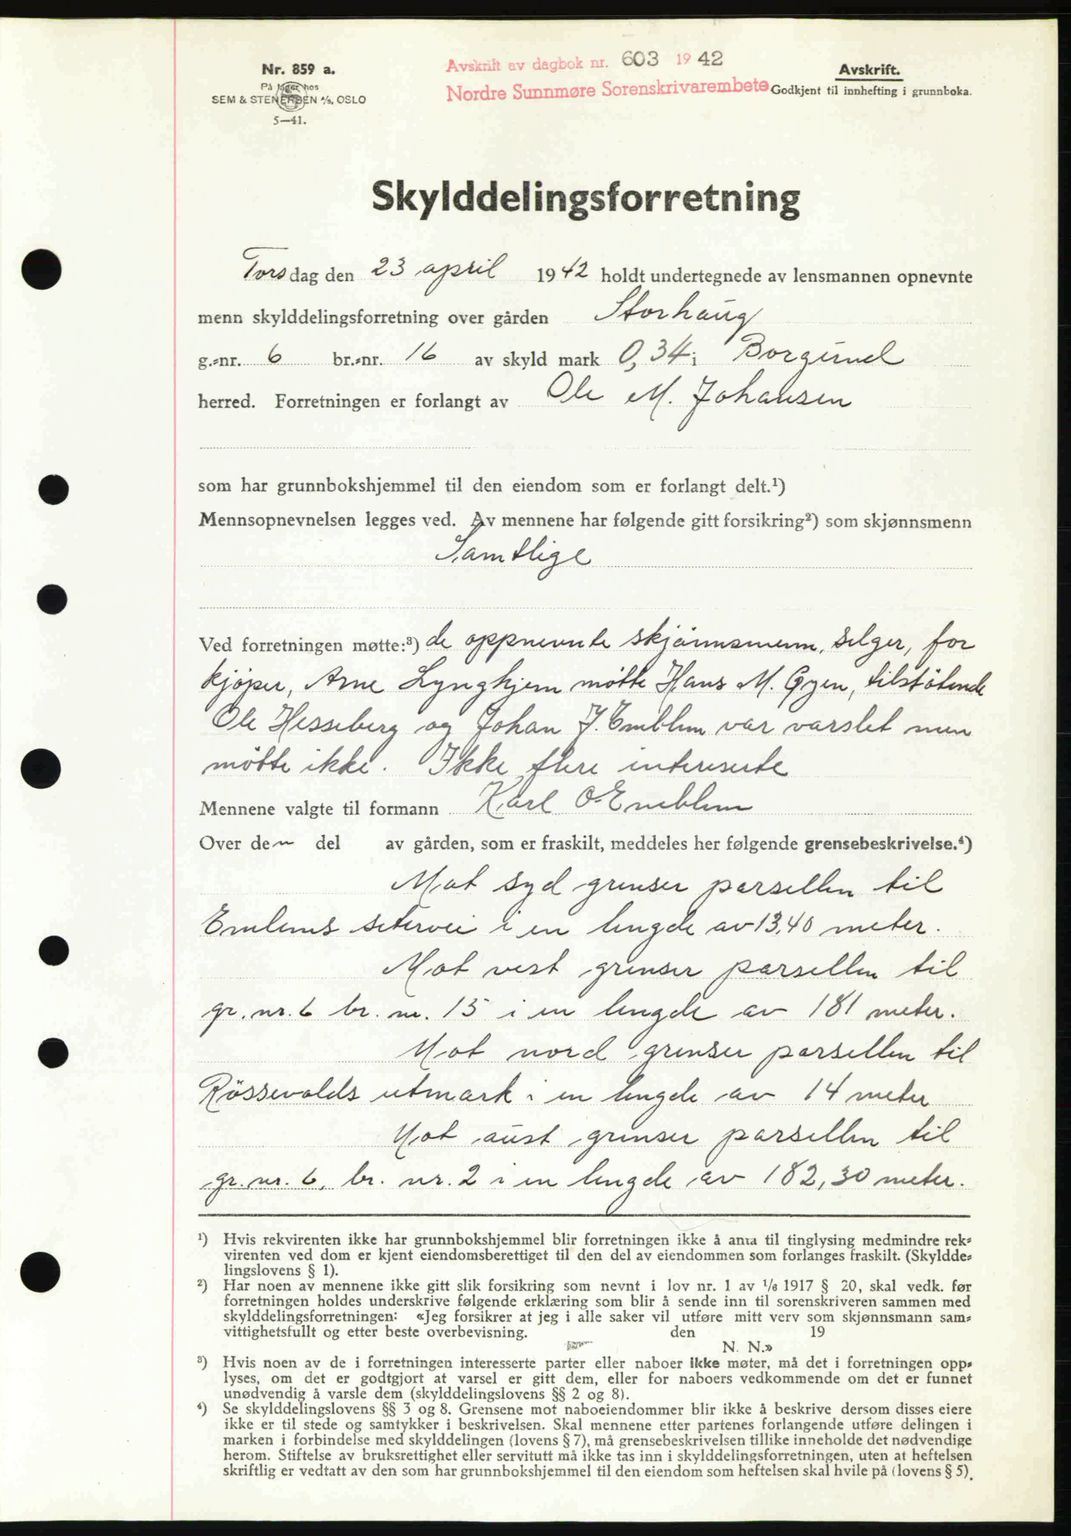 Nr. 859 a.
På lager hos
SEM & STENERSEN A/S, OSLO
5—41.
Avskrift av dagbok nr. 603 1942
Nordre Sunnmøre Sorenskrivarembete
Avskrift.
Godkjent til innhefting i grunnboka.
Skylddelingsforretning
Torsdag den 23 april 1942 holdt undertegnede av lensmannen opnevnte
menn skylddelingsforretning over gården Storhaug
g.-nr. 6 br.-nr. 16 av skyld mark 0,34 i Borgund
herred. Forretningen er forlangt av Ole M. Johansen
som har grunnbokshjemmel til den eiendom som er forlangt delt.¹)
Mennsopnevnelsen legges ved. Av mennene har følgende gitt forsikring²) som skjønnsmenn
Samtlige
Ved forretningen møtte:³) de oppnevnte skjönnsmenn, selger, for
kjøper, Arne Lynghjem møtte Hans M. Gjen, tilstötende
Ole Hesseberg og Johan J. Emblem var varslet men
mötte ikke. Ikke flere intereserte
Mennene valgte til formann Karl O. Emblem
Over den del av gården, som er fraskilt, meddeles her følgende grensebeskrivelse.⁴)
Mot syd grenser parsellen til
Emlems setervei i en lengde av 13,40 meter.
Mot vest grenser parsellen til
gr. nr. 6 br. nr. 15 i en lengde av 181 meter.
Mot nord grenser parsellen til
Rössevolds utmark i en lengde av 14 meter
Mot aust grenser parsellen til
gr. nr. 6, br. nr. 2 i en lengde av 182,30 meter.
¹) Hvis rekvirenten ikke har grunnbokshjemmel blir forretningen ikke å anta til tinglysing medmindre rek-
virenten ved dom er kjent eiendomsberettiget til den del av eiendommen som forlanges fraskilt. (Skyldde-
lingslovens § 1).
²) Har noen av mennene ikke gitt slik forsikring som nevnt i lov nr. 1 av 1/6 1917 § 20, skal vedk. før
forretningen holdes underskrive følgende erklæring som blir å sende inn til sorenskriveren sammen med
skylddelingsforretningen: «Jeg forsikrer at jeg i alle saker vil utføre mitt verv som skjønnsmann sam-
vittighetsfullt og etter beste overbevisning. den 19
N. N.»
³) Hvis noen av de i forretningen interesserte parter eller naboer ikke møter, må det i forretningen opp-
lyses, om det er godtgjort at varsel er gitt dem, eller for naboers vedkommende om det er funnet
unødvendig å varsle dem (skylddelingslovens §§ 2 og 8).
⁴) Se skylddelingslovens §§ 3 og 8. Grensene mot naboeiendommer blir ikke å beskrive dersom disses eiere
ikke er til stede og samtykker i beskrivelsen. Skal mennene etter partenes forlangende utføre delingen i
marken i forbindelse med skylddelingen (lovens § 7), må grensebeskrivelsen tillike inneholde det nødvendige
herom. Stiftelse av bruksrettighet eller servitutt må ikke tas inn i skylddelingsforretningen, uten at heftelsen
skriftlig er vedtatt av den som har grunnbokshjemmel til den eiendom som heftelsen skal hvile på (lovens § 5).